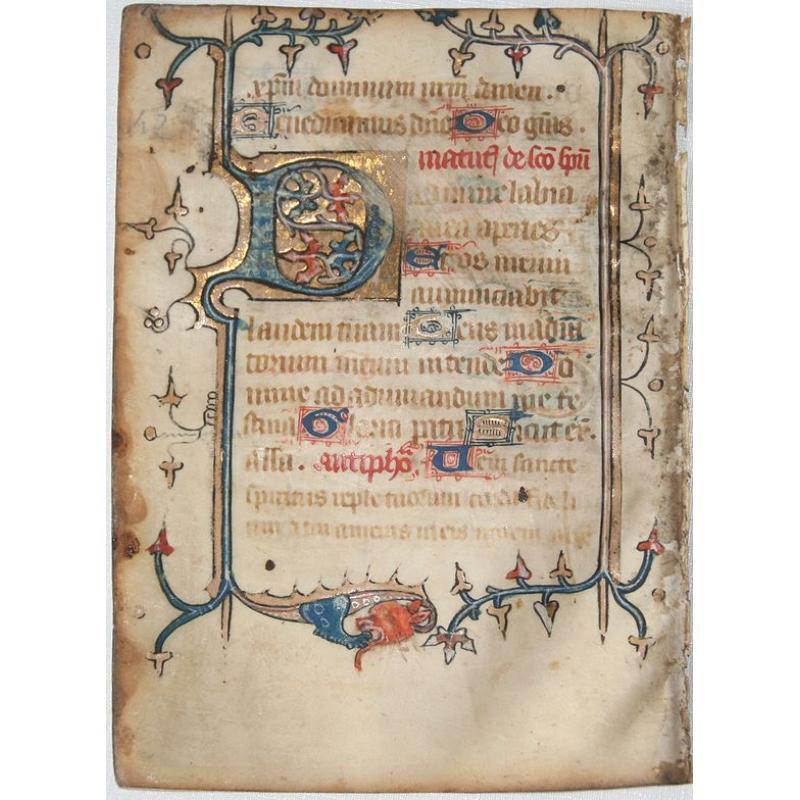 xp̄m dominum nr̄m amen.
Benedicamus dn̄o Deo gr̄as.
matut' de sc̄o sp̄u
omine labia
mea aperies
Et os meum
annunciabit
laudem tuam Deus in adiu
torium meum intende Do
mine ad adiuuandum me fe
stina Gloria patri Sicut er.
alla. antiph̄o. Veni sancte
spiritus reple tuorum corda fideli
um